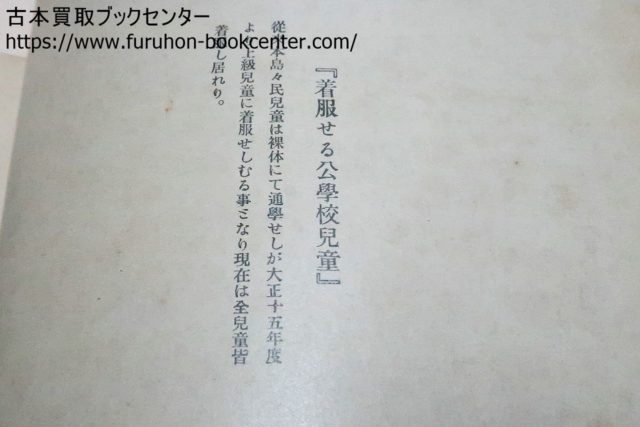 古本買取ブックセンター
https://www.furuhon-bookcenter.com/
『着服せる公學校兒童』
從來本島々民兒童は裸体にて通學せしが大正十五年度
より上級兒童に着服せしむる事となり現在は全兒童皆
着服し居れり。